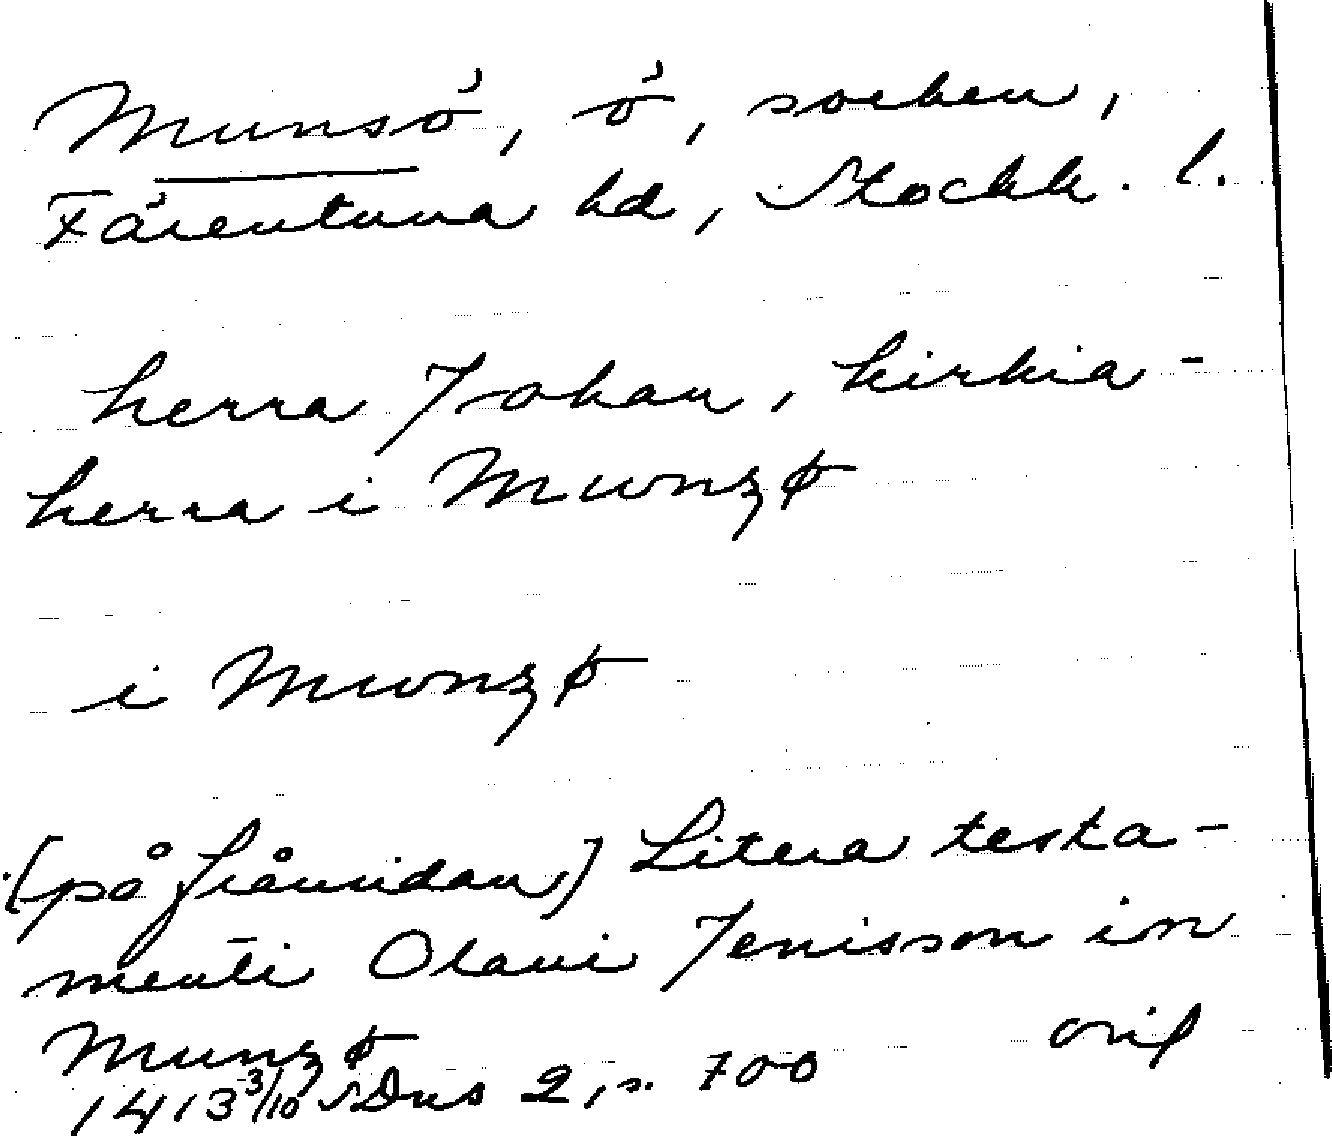 Munsö, ö, socken,
Färentuna hd, Stockh. l.
herra Johan, kirkia-
herra i Mwnzø
i Mwnzø
[på frånsidan] Litera testa-
menti Olaui Jenisson in
Munzø orig
1413 3/10 SDns 2, s. 700